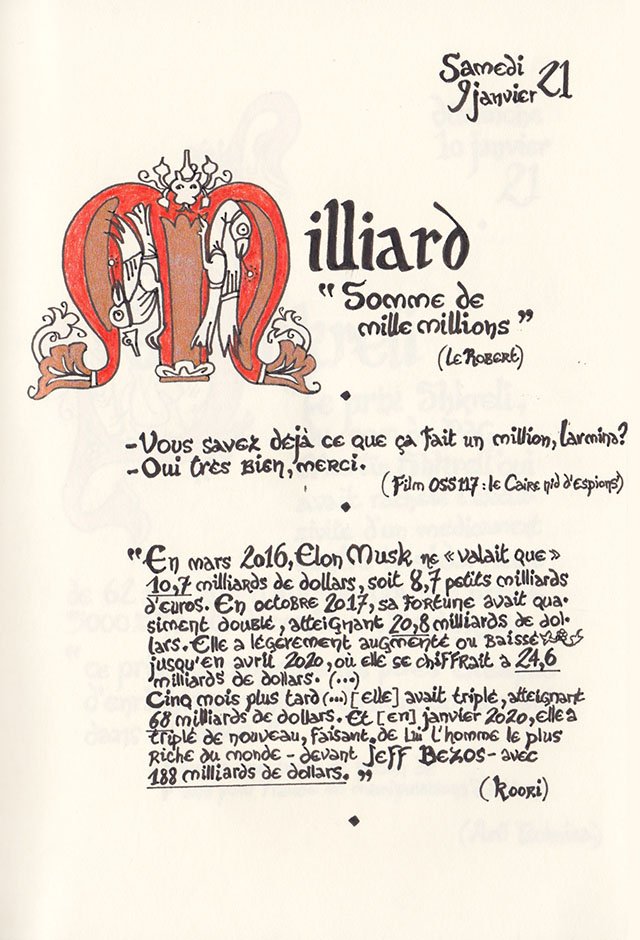 Samedi
9 janvier 21
Milliard
“Somme de
mille millions”
(Le Robert)
-Vous savez déjà ce que ça fait un million, Larmina?
-Oui très bien, merci.
(Film OSS 117 : le Caire nid d'espions)
“En mars 2016, Elon Musk ne « valait que »
10,7 milliards de dollars, soit 8,7 petits milliards
d'euros. En octobre 2017, sa fortune avait qua-
siment doublé, atteignant 20,8 milliards de dol-
lars. Elle a légèrement augmenté ou baissé
jusqu'en avril 2020, où elle se chiffrait à 24,6
milliards de dollars. (...)
Cinq mois plus tard (...) [elle] avait triplé, atteignant
68 milliards de dollars. Et [en] janvier 2020, elle a
triplé de nouveau, faisant de lui l'homme le plus
riche du monde - devant Jeff Bezos - avec
188 milliards de dollars.”
(Koori)